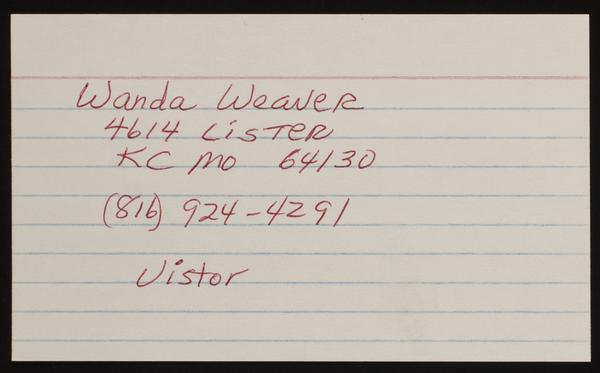 Wanda Weaver
4614 Lister
KC Mo 64130
(816) 924-4291
Vistor